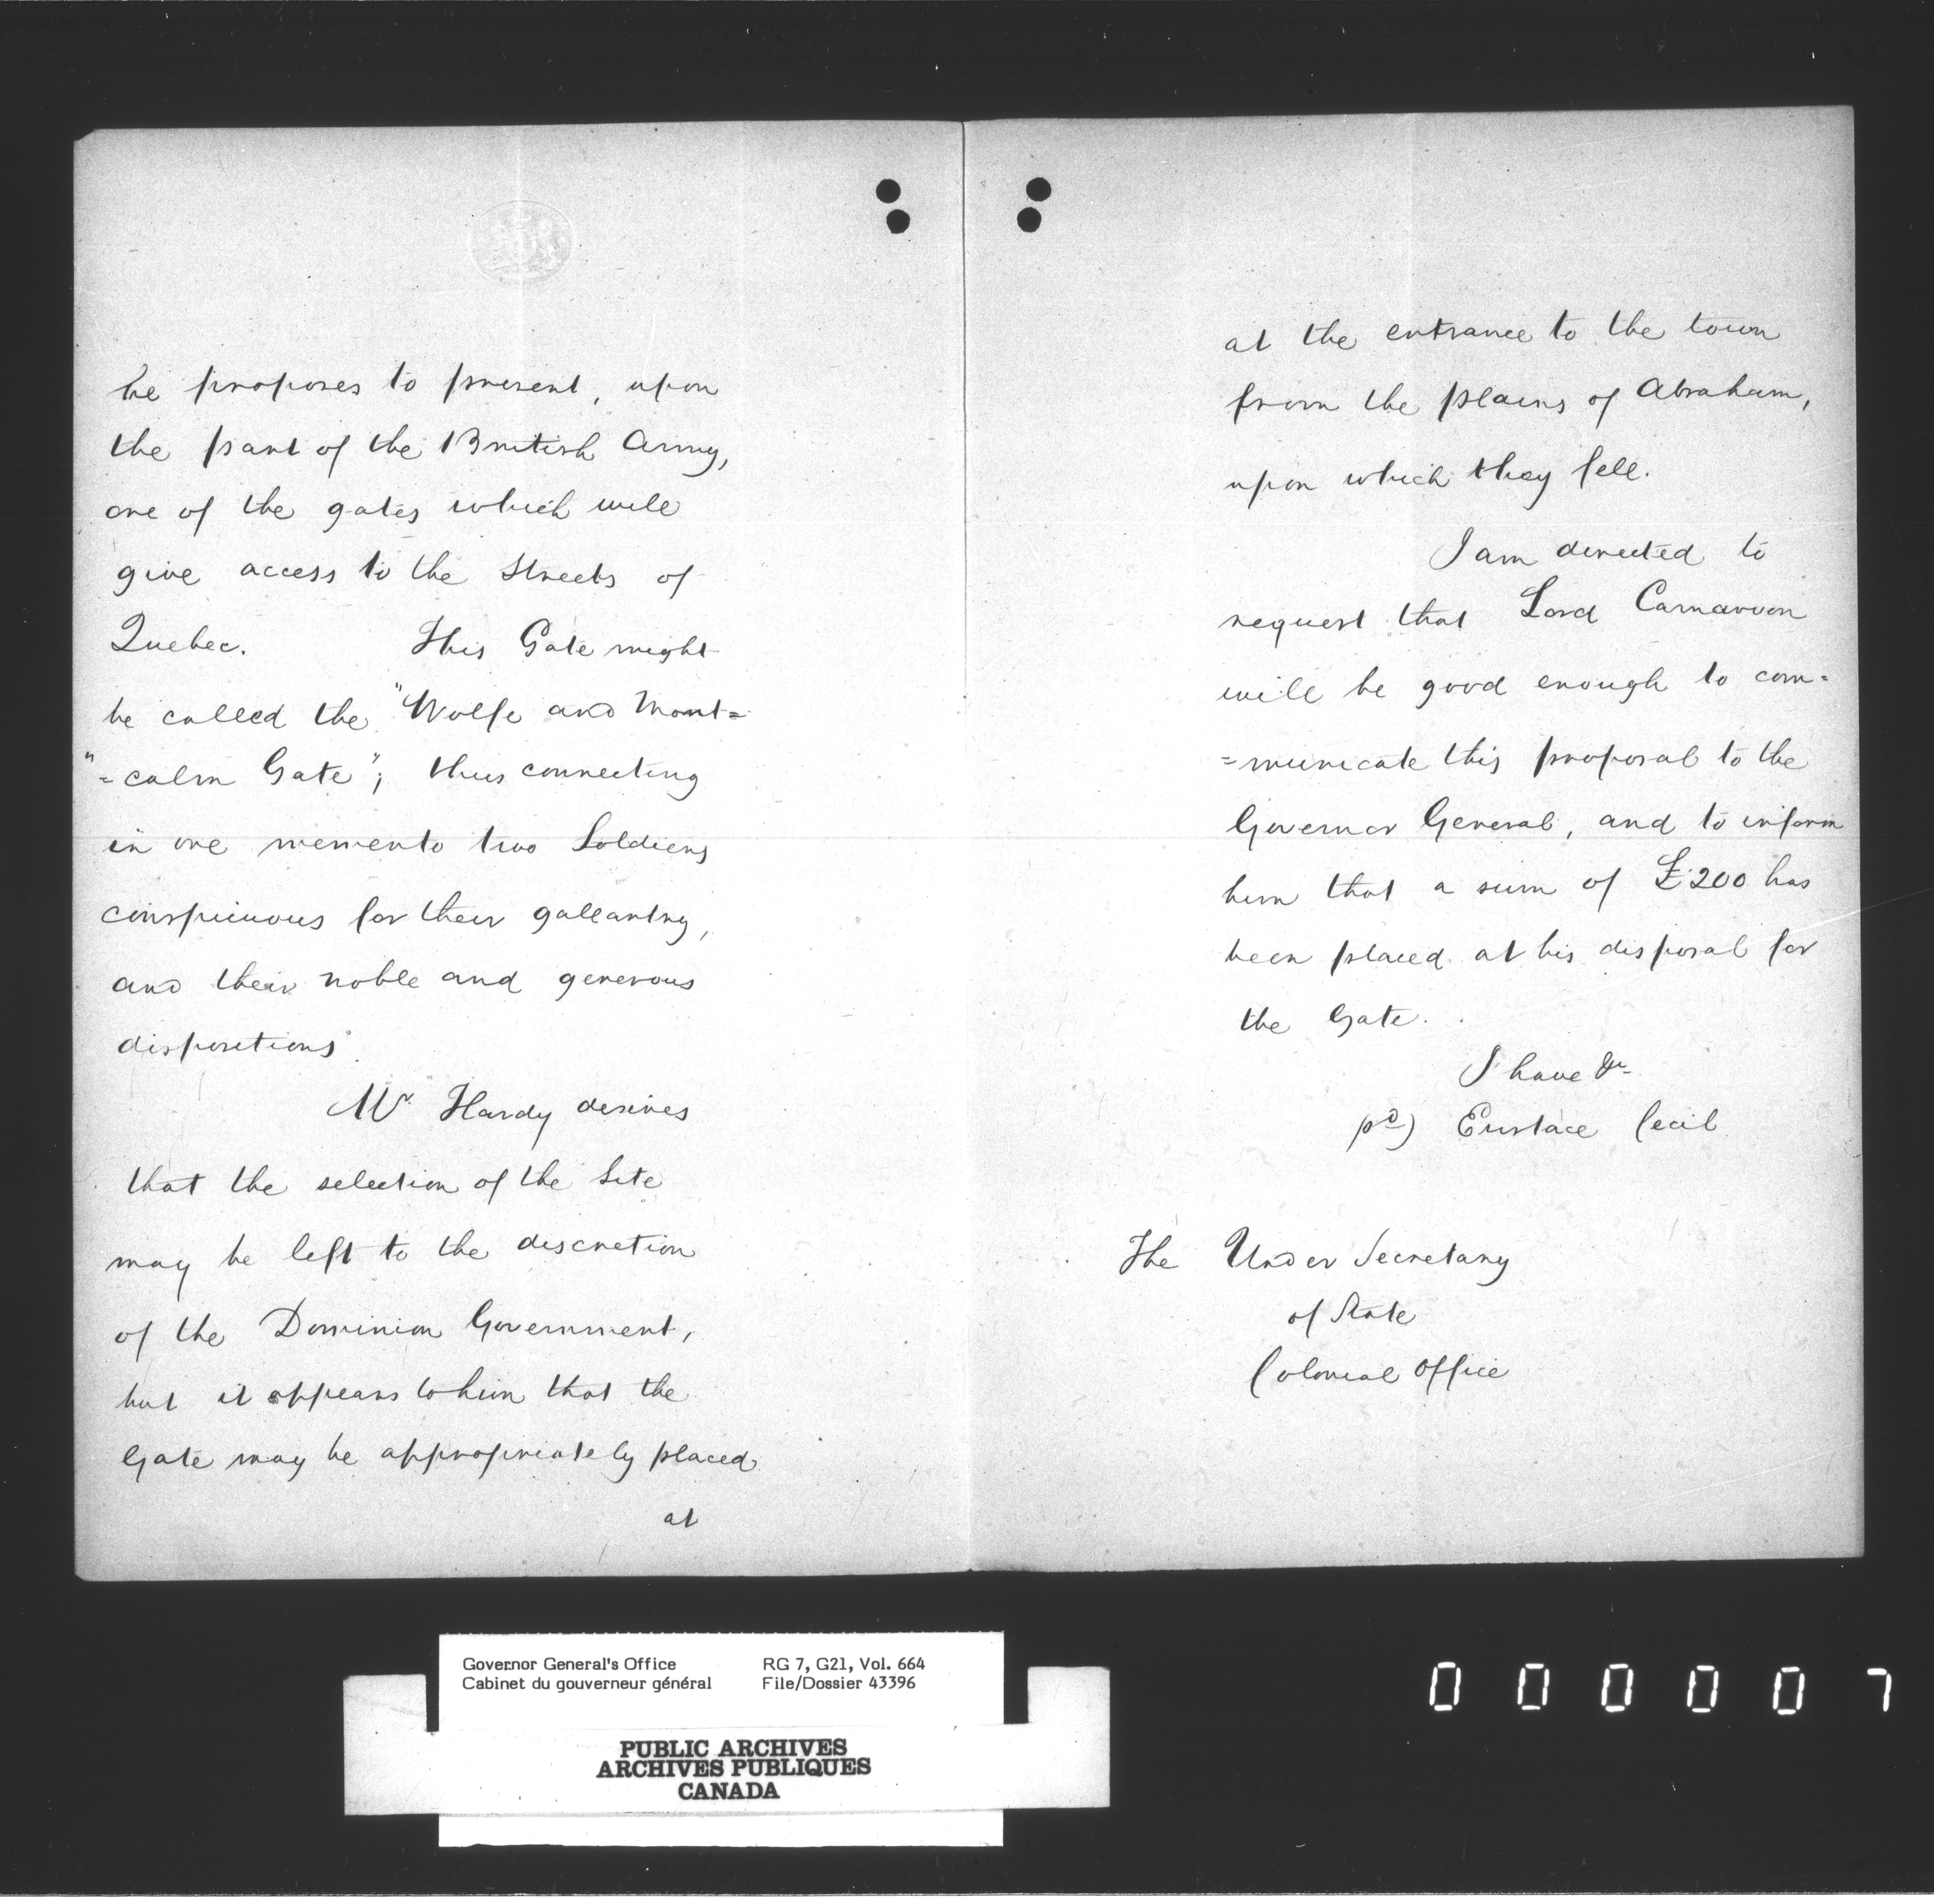 he proposes to present, upon
the part of the British Army,
one of the gates which will
give access to the Streets of
Quebec. This Gate might
be called the "Wolfe and Mont=
"=calm Gate"; thus connecting
in one memento two Soldiers
conspicuous for their gallantry,
and their noble and generous
dispositions.
Mr Hardy desires
that the selection of the Site
may be left to the discretion
of the Dominion Government,
but it appears to him that the
Gate may be appropriately placed
at
at the entrance to the town
from the plains of Abraham,
upon which they fell.
I am directed to
request that Lord Carnarvon
will be good enough to com=
=municate this proposal to the
Governor General, and to inform
him that a sum of £200 has
been placed at his disposal for
the Gate.
I have &c
sd) Eustace Cecil
The Under Secretary
of State
Colonial Office
Governor General's Office RG 7, G21, Vol. 664
Cabinet du gouverneur général File/Dossier 43396
PUBLIC ARCHIVES
ARCHIVES PUBLIQUES
CANADA
000007